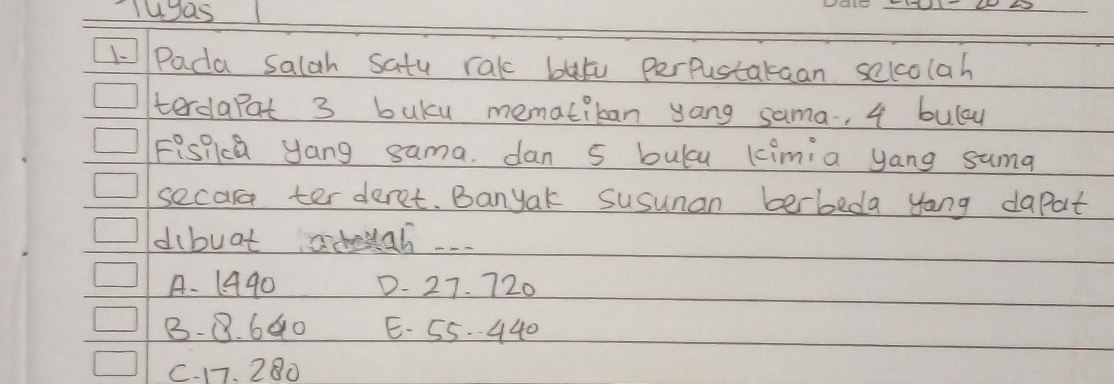 Tugas 1
1. Pada salah satu rak buku Perpustakaan sekolah
terdapat 3 buku mematikan yang sama., 4 buku
Fisika yang sama. dan 5 buku kimia yang sama
secara ter deret. Banyak susunan berbeda yang dapat
dibuat adalah ---
A. 1490 D. 27.720
B. 8.640 E. 55..440
C. 17. 280